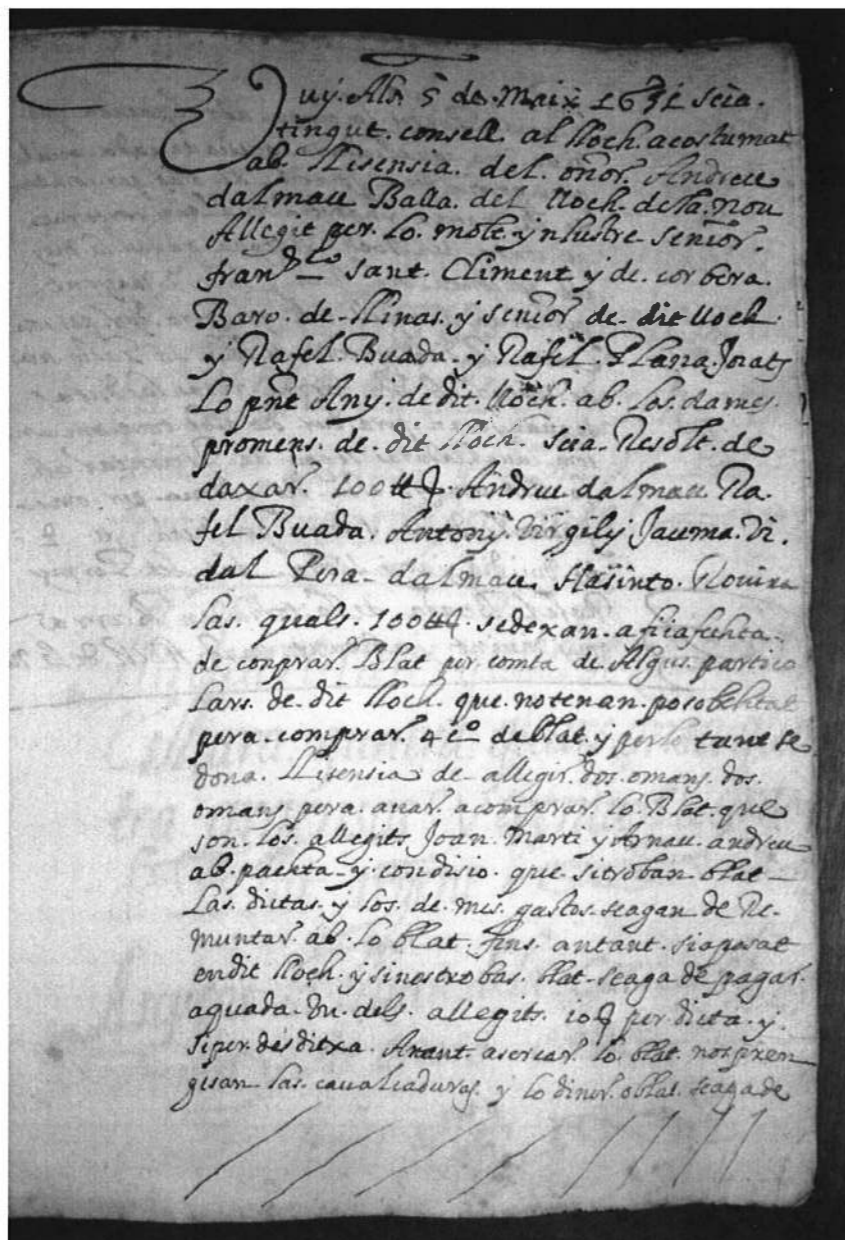 Vuy Als 5 de Maix 1631 seia
tingut consell al lloch acostumat
ab llisensia del onor. Andreu
dalmau Balla del lloch de la nou
Allegit per lo molt ynlustre senior
fran.co sant Climent y de corbera
Baro de llinas y senior de dit lloch
y Rafel Buada y Rafel Plana Jorats
Lo pnt Any de dit lloch ab los dames
promens de dit lloch seia Resolt de
daxar 100 ll Andreu dalmau Ra-
fel Buada Antony Virgily Jauma Vi-
dal Pera dalmau Hasinto Rovira
las quals 100 ll sedexan afi
de conprar Blat per comta de Algus partico
lars de dit lloch que notenan posobelitat
pera comprar 4 co de blat y perlo tant se
dona llisensia de allegir dos omans dos
omans pera anar acomprar lo Blat que
son los allegits Joan Marti y Arnau andreu
ab packta y condisio que sitroban blat
Las dictas y los de mes gastos seagan de Re-
muntar ab lo blat fins antant siaposat
endit lloch y sinostrobas blat seaga de pagar
aquada hu dels allegits 10 per dicta y
siper desditxa Anant asercar lo blat nosprem
gisan las cavalcaduras y lo diner oblat seaga de